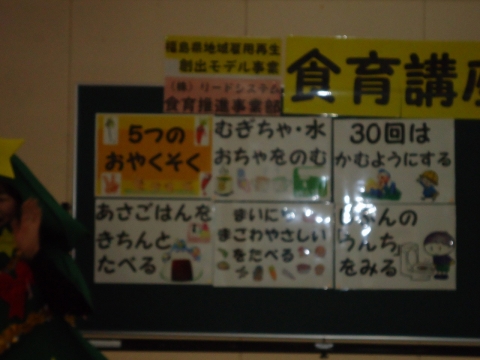 福島県地域雇用再生
創出モデル事業
(株)リードシステム
食育推進事業部
食育講座
5つの
おやくそく
むぎちゃ・水
おちゃをのむ
30回は
かむようにする
あさごはんを
きちんと
たべる
まいにち
まごわやさしい
をたべる
じぶんの
うんち
をみる